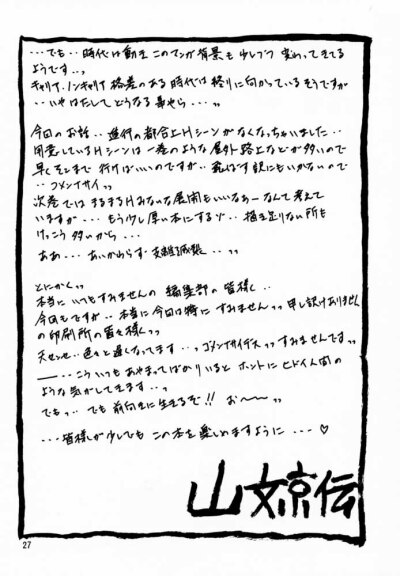 ・・・でも・・時代は動き このマンガ背景も 少しづつ 変わってきてる
ようです・・、
キャリア、ノンキャリア 格差のある時代は終りに向かっているそうですが
・・いやはたしてどうなる事やら・・・〟
今回のお話・・進行の都合上Hシーンがなくなっちゃいました・・
用意しているHシーンは一巻のような屋外、路上などが多いので
早くそこまで行けばいいのですが・・飛ばす訳にもいかないので
・・ゴメンナサイ〟
次巻ではまるまるHみたいな展開もいいなぁーなんて考えて
いますが・・・もう少し厚い本にするゾ・・描き足りない所も
けっこう多いから・・・
ああ・・・あいかわらず支離滅裂・・〟
とにかく〟
本当にいつもすみませんの 編集部の皆様く
今回もですが・・本当に今回は特に すみませんっ〟申し訳ありません
の印刷所の皆々様く〟
天センセ・・色々と遅くなってます・・〟ゴメンナサイデス〟すみませんです〟
―・・・こういつもあやまってばかりいると ホントに ヒドイ人間の
ような気がしてきます・・、
でもっ・・でも前向きに生きるぞ!! お〜〜〟
・・・皆様が少しでも この本を楽しめますように・・・♡
山文京伝
27